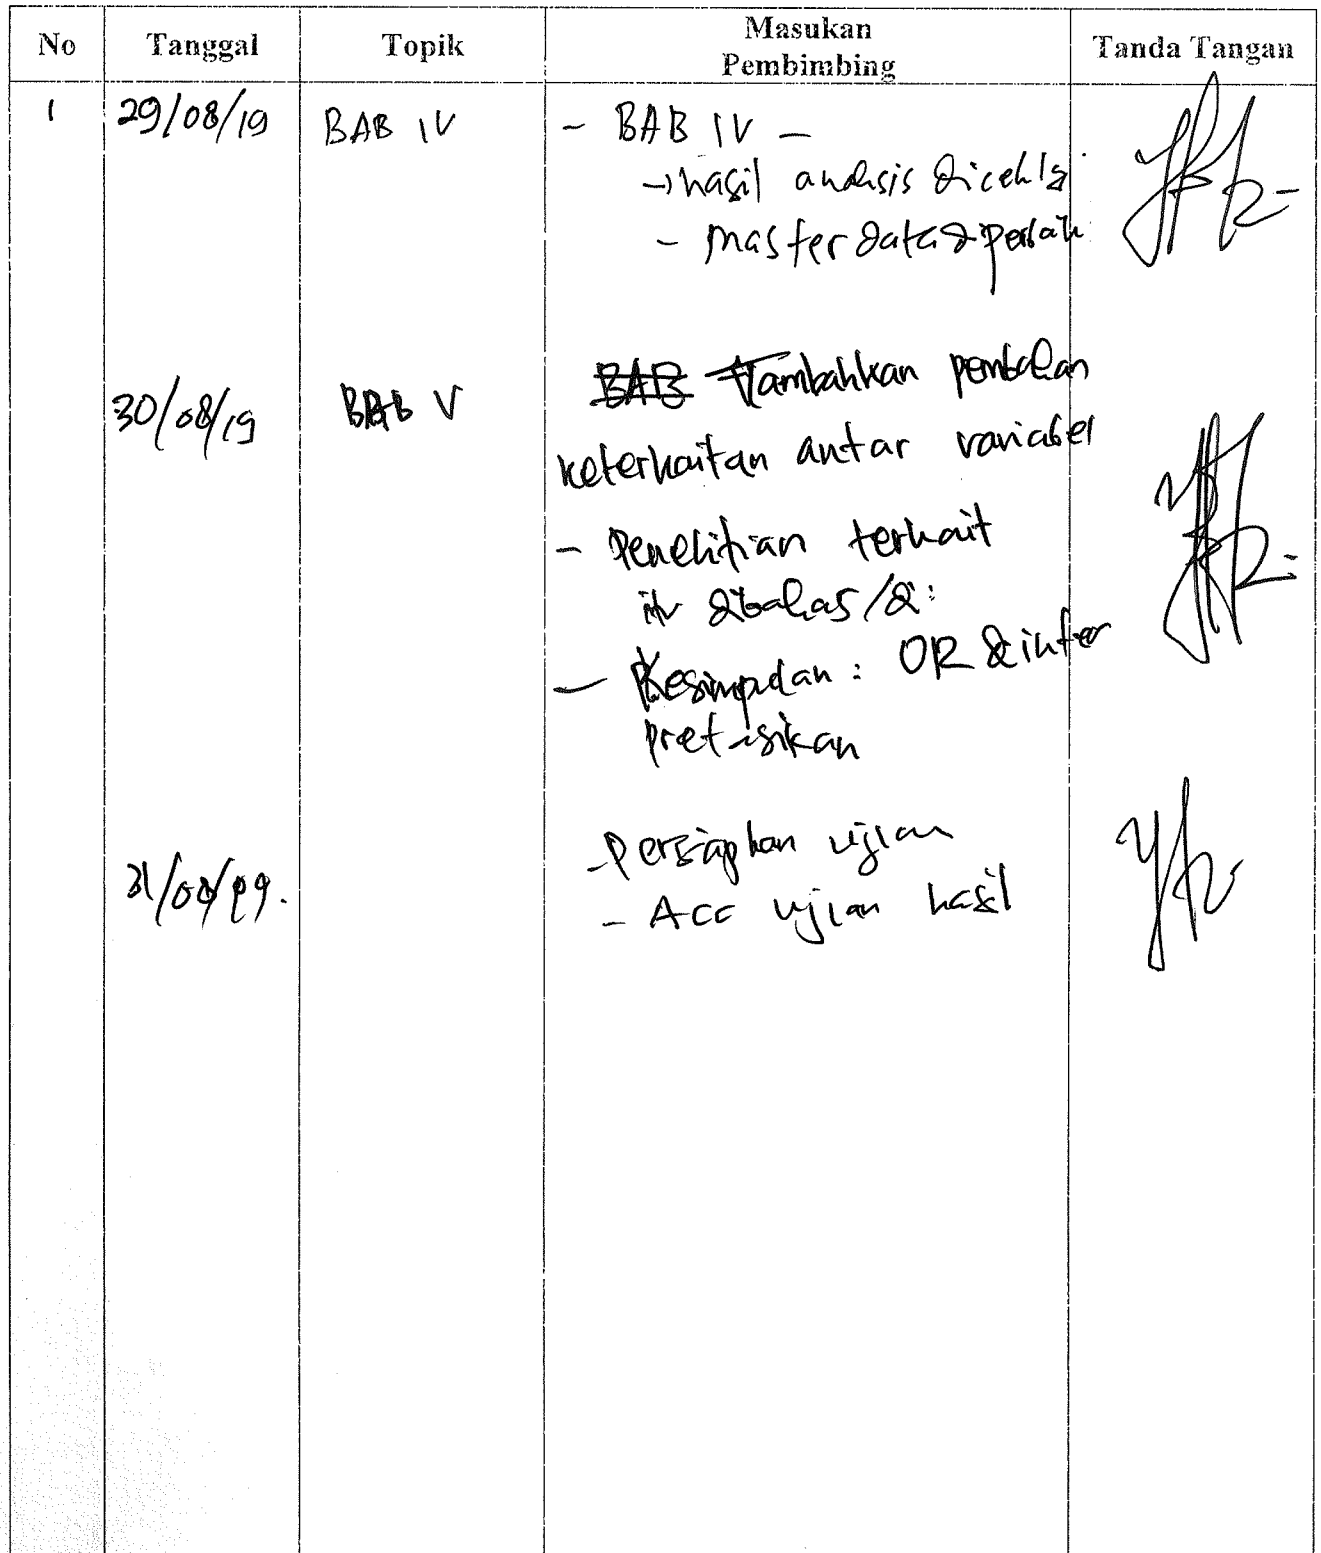 No Tanggal Topik Masukan Pembimbing Tanda Tangan
1 29/08/19 BAB IV - BAB IV -
→ hasil analisis dicek
- Master data diperbaik
30/08/19 BAB V BAB Tambahkan
keterkaitan antar variabel
- Penelitian terkait
itu dibahas
- Kesimpulan : OR & inter
pretasikan
31/08/19. - Persiapkan ujian
- Acc ujian hasil